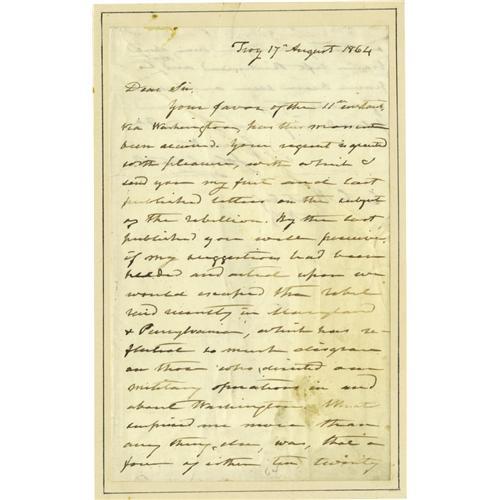 Troy 17" August 1864
Dear Sir,
Your favor of the 11" instant,
via Washington, has this moment
been received. Your request is granted
with pleasure, with which I
send you my first and last
published letters on the subject
of the rebellion. By the last
published you will perceive,
if my suggestions had been
heeded and acted upon we
would escaped the rebel
raid recently in Maryland
& Pennsylvania, which has re-
flected so much disgrace
on those who directed our
military operations in and
about Washington. What
surprised me more than
any thing else, was, that a
force of either ten twenty